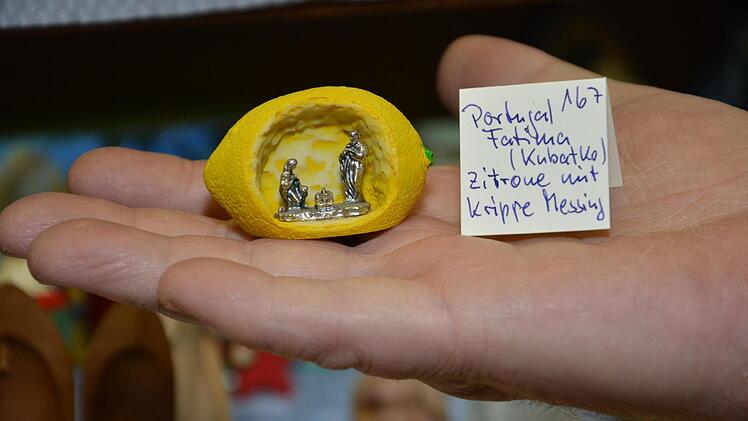 Portugal 167
Fatima
(Kubatko)
Zitrone mit
Krippe Messing